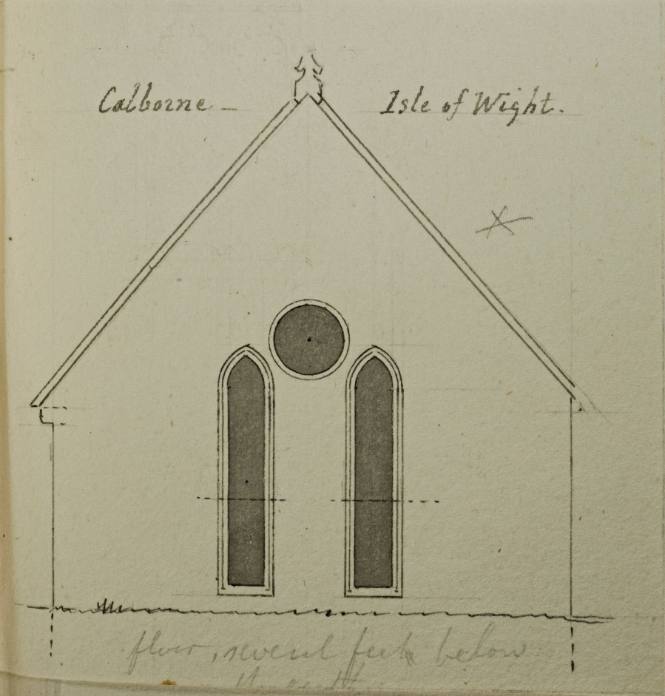 Calborne – Isle of Wight.
floor, several feet below
the earth